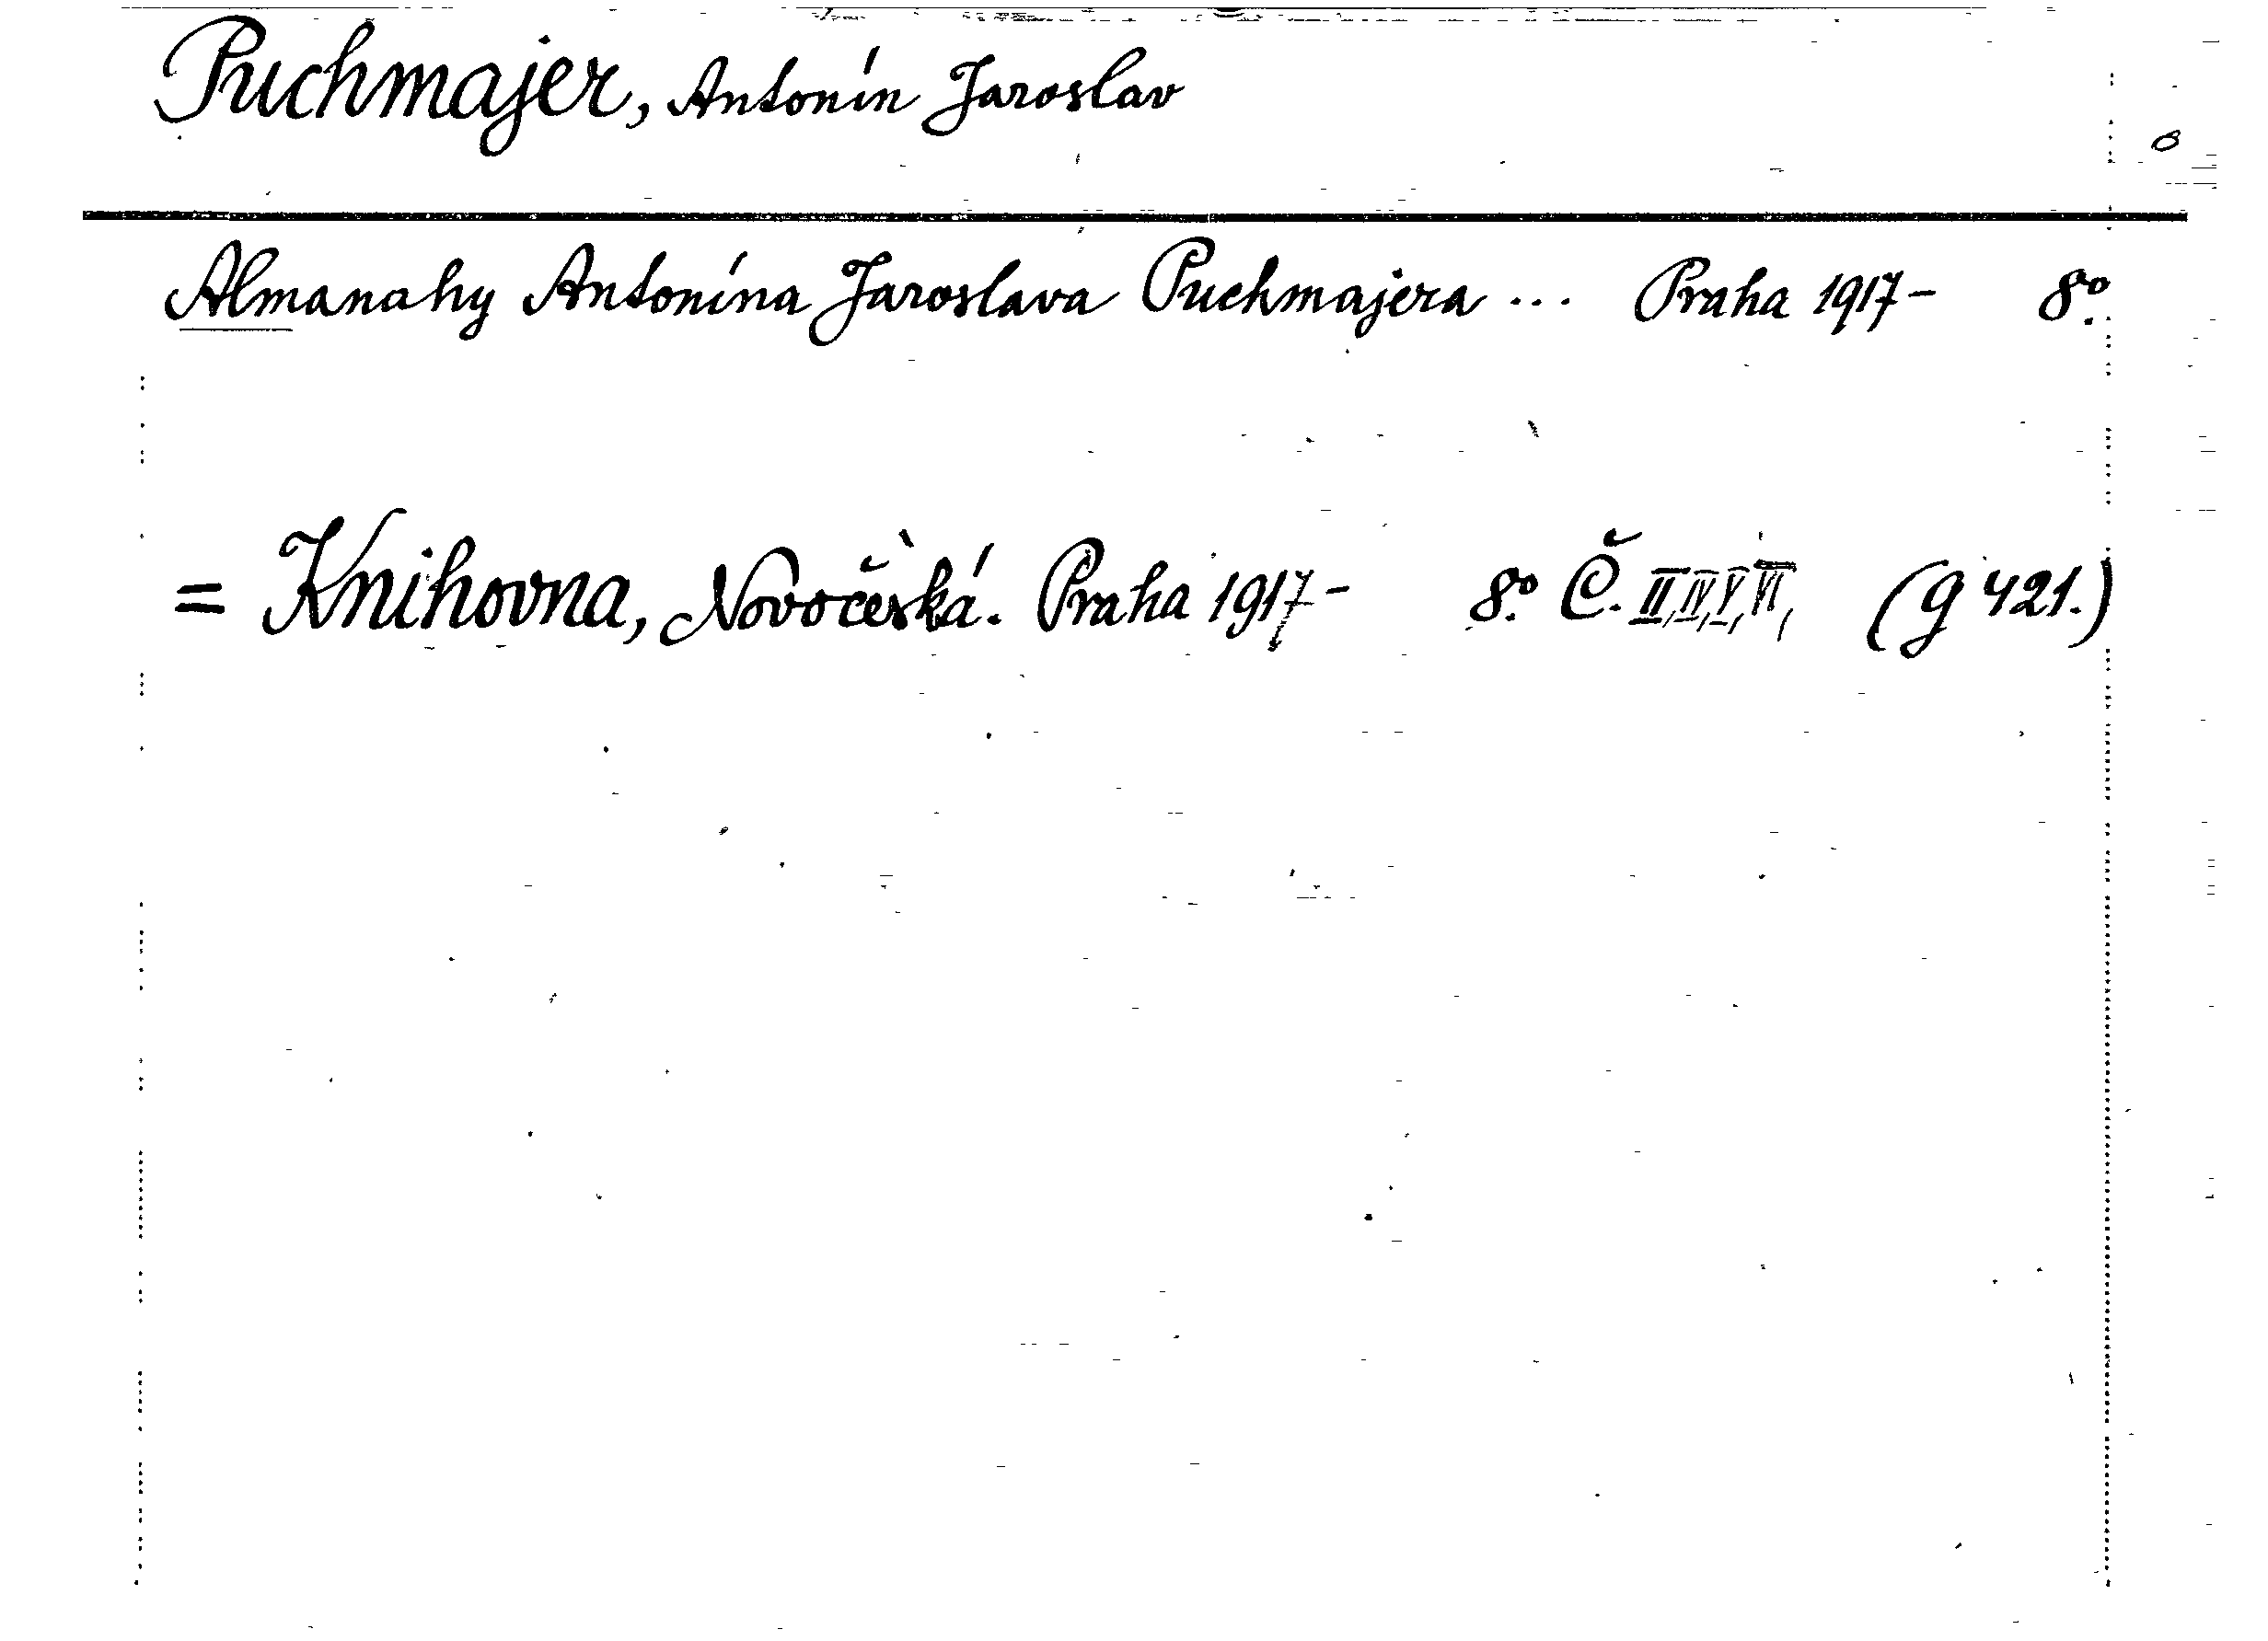 Puchmajer, Antonín Jaroslav
Almanahy Antonína Jaroslava Puchmajera ... Praha 1917- 8º.
= Knihovna, Novočeská. Praha 1917- 8º. Č. II, IV, V, VI, (g 421.)